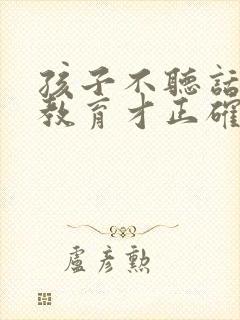 孩子不聽話
教育才正確
盧彥勲